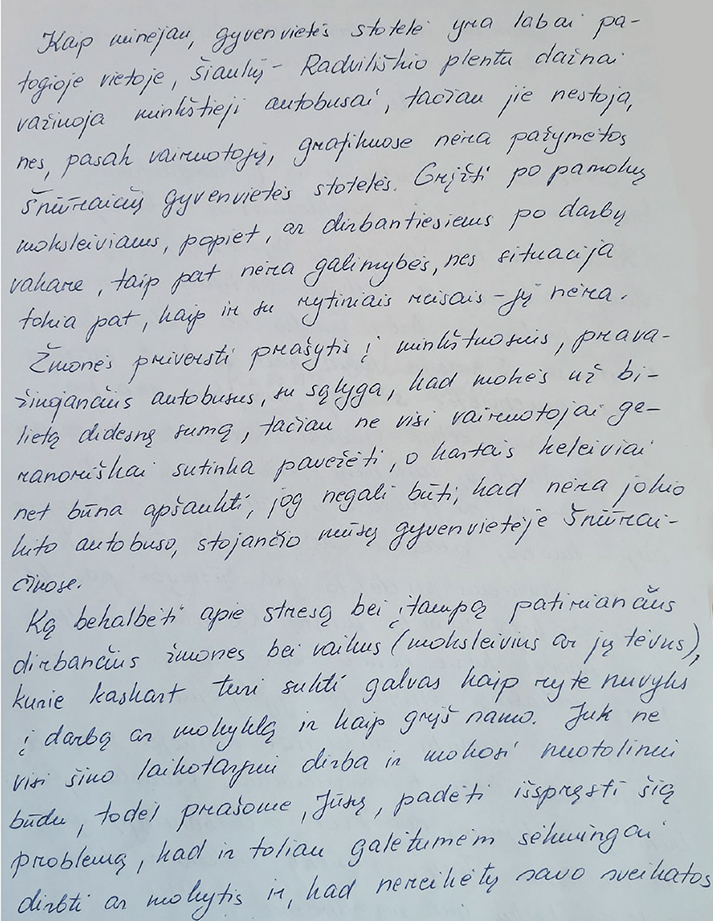 Kaip minėjau, gyvenvietės stotelė yra labai pa-
togioje vietoje, Šiaulių - Radviliškio plentu dažnai
važinoja minkštieji autobusai, tačiau jie nestoja,
nes, pasak vairuotojų, grafikuose nėra pažymėtos
Šniūraičių gyvenvietės stotelės. Grįžti po pamokų
moksleiviams, popiet, ar dirbantiesiems po darbų
vakare, taip pat nėra galimybės, nes situacija
tokia pat, kaip ir su rytiniais reisais - jų nėra.
Žmonės priversti prašytis į minkštuosius, prava-
žiuojančius autobusus, su sąlyga, kad mokės už bi-
lietą didesnę sumą, tačiau ne visi vairuotojai ge-
ranoriškai sutinka pavėžėti, o kartais keleiviai
net būna apšaukti, jog negali būti, kad nėra jokio
kito autobuso, stojančio mūsų gyvenvietėje Šniūrai-
čiuose.
Ką bekalbėti apie stresą bei įtampą patiriančius
dirbančius žmones bei vaikus (moksleivius ar jų tėvus),
kurie kaskart turi sukti galvas kaip ryte nuvyks
į darbą ar mokyklą ir kaip grįš namo. Juk ne
visi šiuo laikotarpiu dirba ir mokosi nuotoliniu
būdu, todėl prašome, Jūsų, padėti išspręsti šią
problemą, kad ir toliau galėtumėm sėkmingai
dirbti ar mokytis ir, kad nereikėtų savo sveikatos